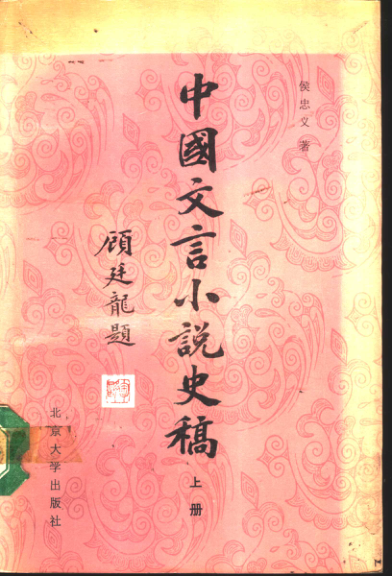 侯忠义 著
中國文言小説史稿
上册
顾廷龍題
北京大学出版社